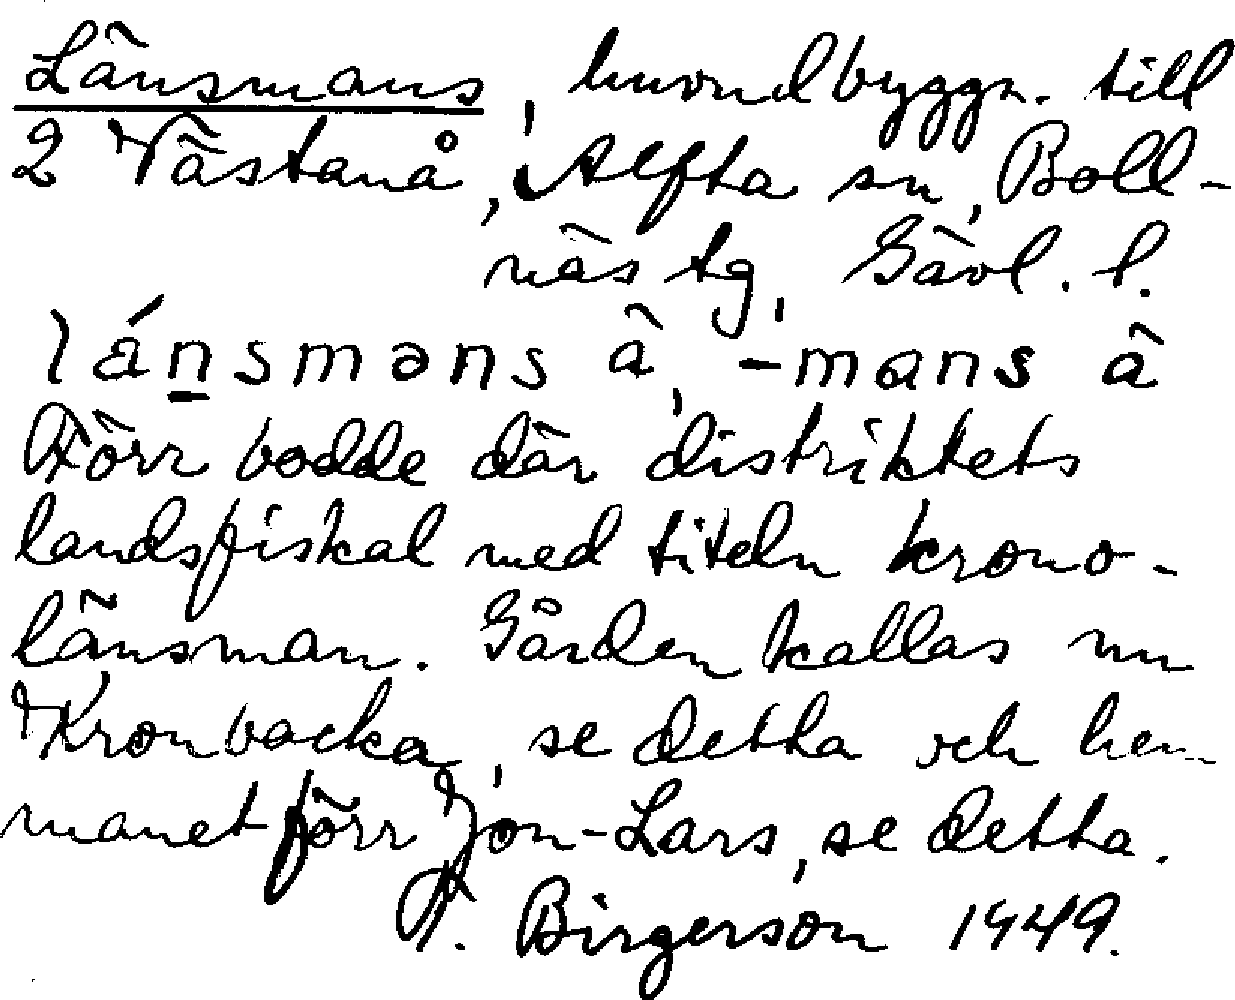 Länsmans, huvudbyggn. till
2 Västanå, Alfta sn, Boll-
näs tg, Gävl. l.
lánsməns â, -mans â
Förr bodde där distriktets
landsfiskal med titeln krono-
länsman. Gården kallas nu
Kronbacka, se detta och hem-
manet förr Jon-Lars, se detta.
F. Birgerson 1949.